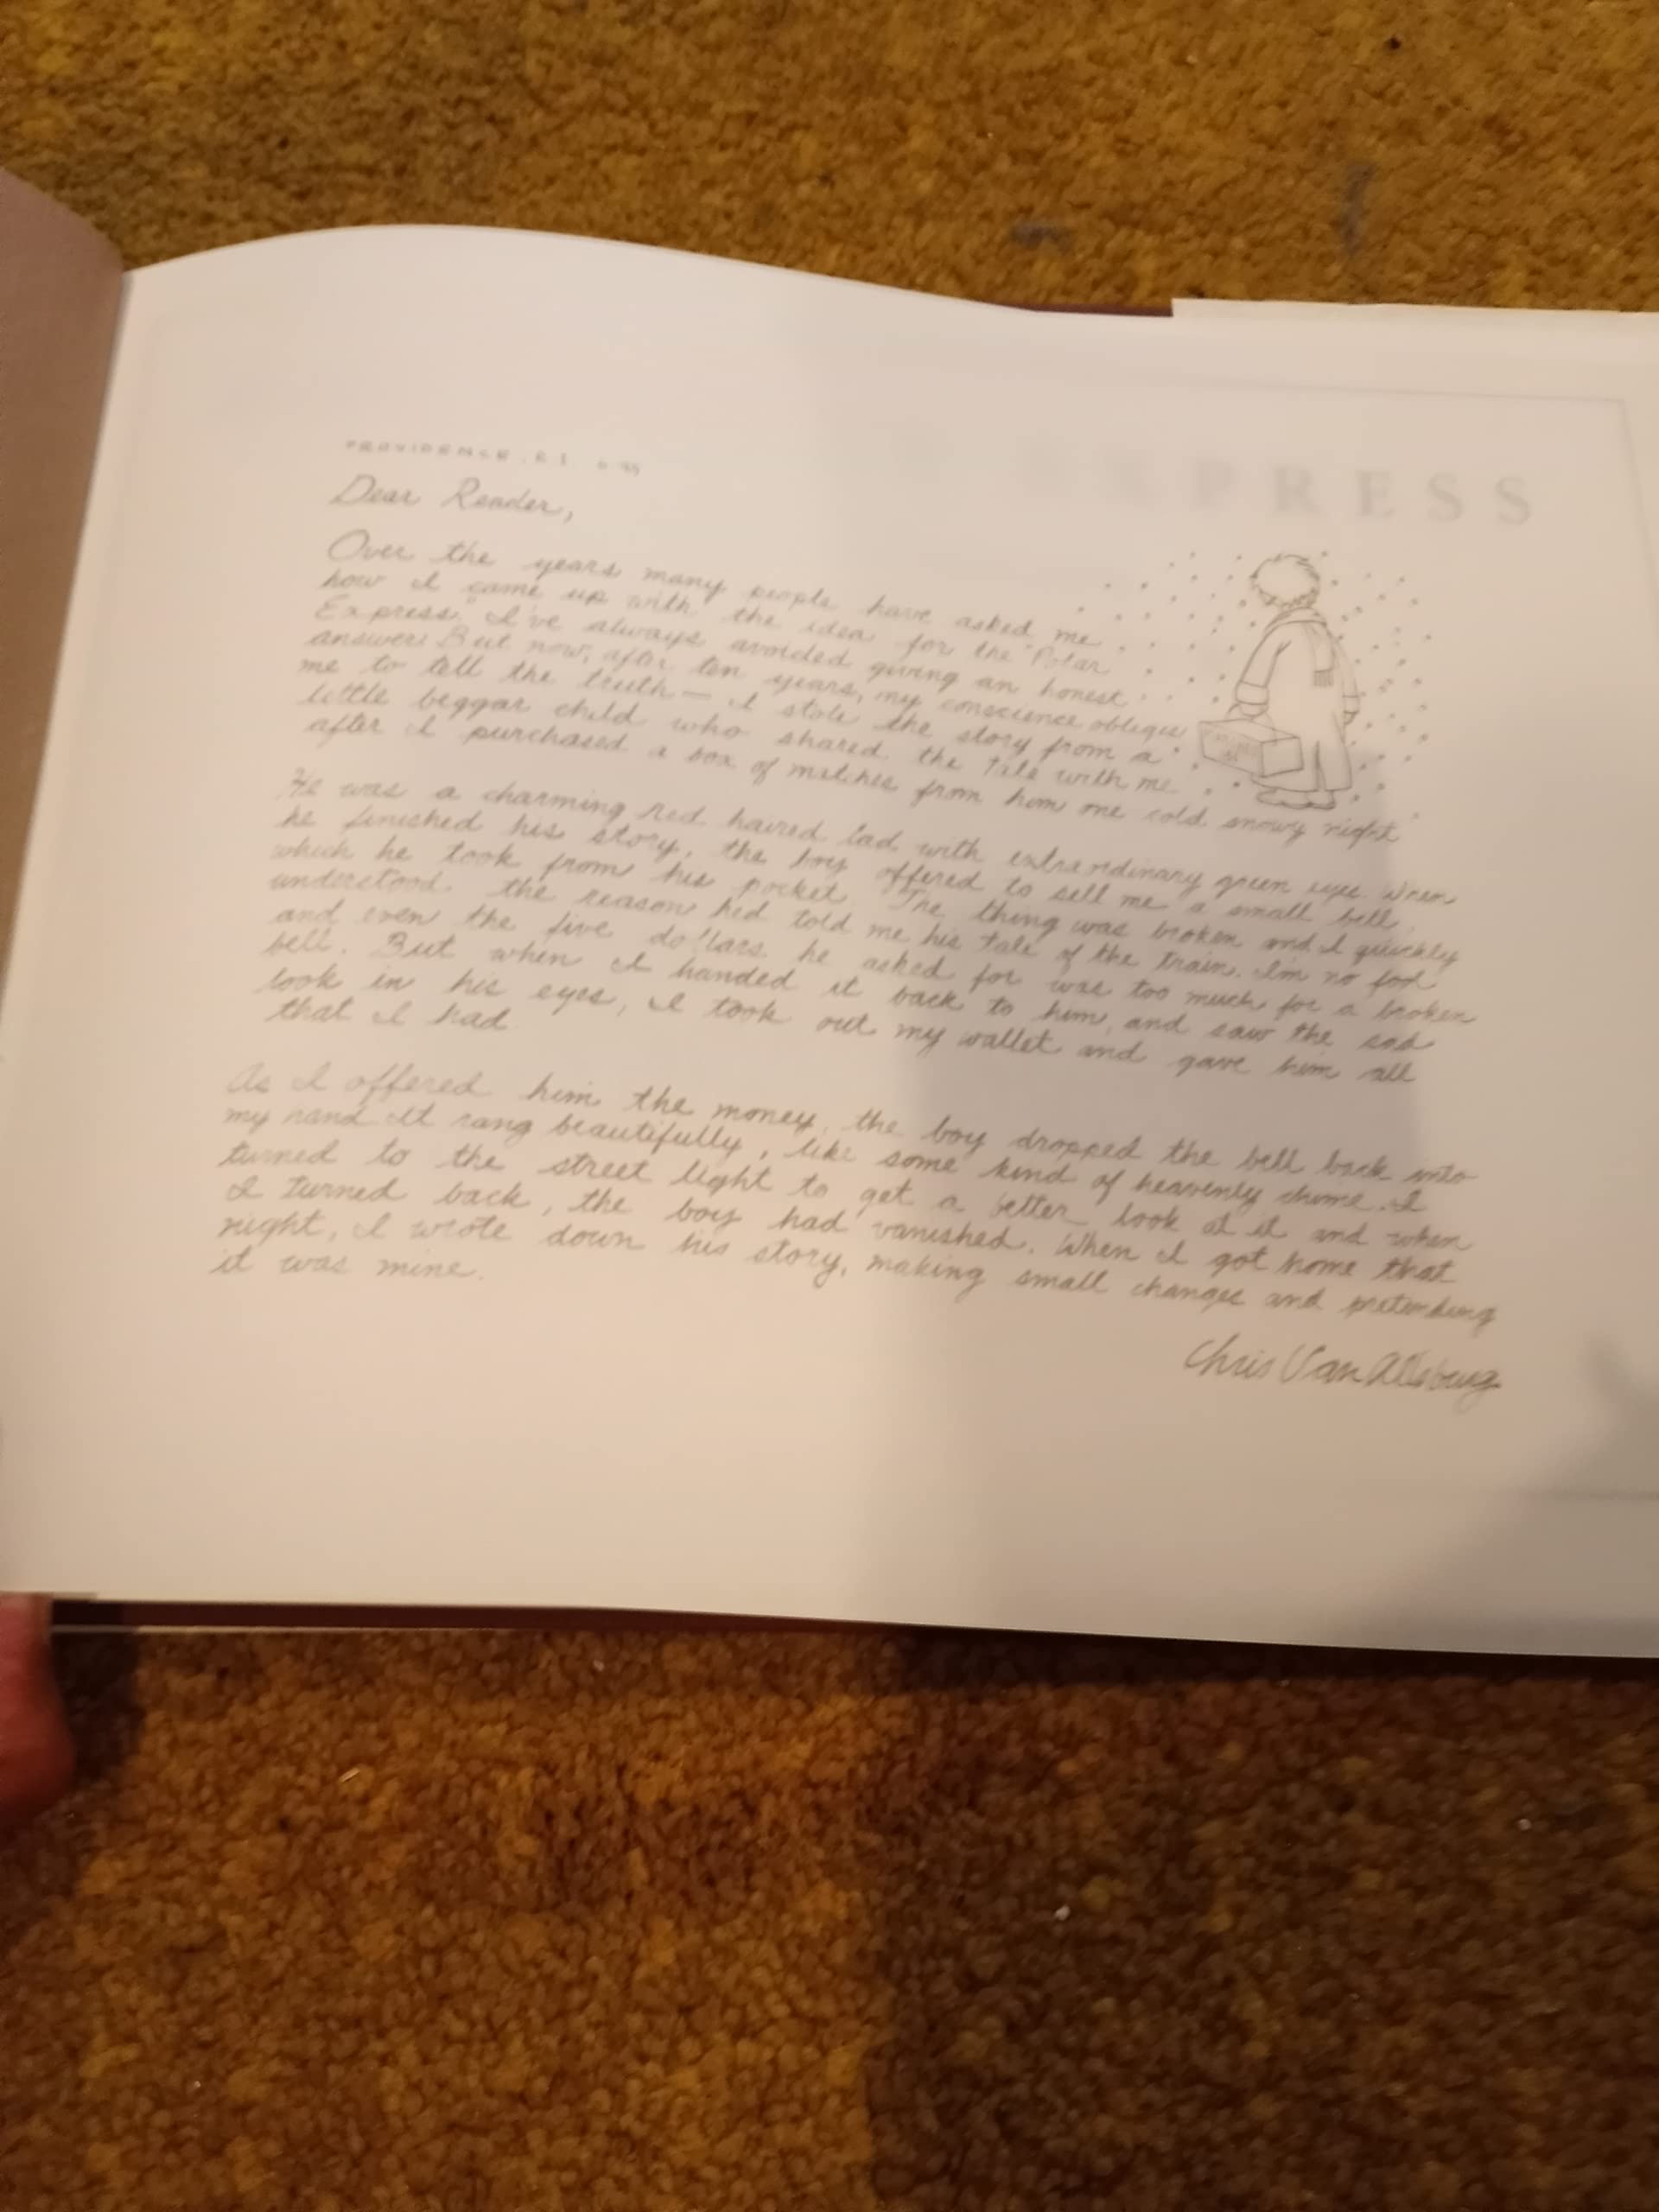 PROVIDENCE, R.I.
EXPRESS
Dear Reader,
Over the years many people have asked me
how I came up with the idea for the "Polar
Express." I've always avoided giving an honest
answer. But now, after ten years, my conscience obliges
me to tell the truth — I stole the story from a
little beggar child who shared the tale with me
after I purchased a box of matches from him one cold snowy night
He was a charming red haired lad with extraordinary green eyes. When
he finished his story, the boy offered to sell me a small bell
which he took from his pocket. The thing was broken and I quickly
understood the reason he'd told me his tale of the train. I'm no fool
and even the five dollars he asked for was too much for a broken
bell. But when I handed it back to him, and saw the sad
look in his eyes, I took out my wallet and gave him all
that I had
As I offered him the money, the boy dropped the bell back into
my hand It rang beautifully, like some kind of heavenly chime. I
turned to the street light to get a better look at it and when
I turned back, the boy had vanished. When I got home that
night, I wrote down his story, making small changes and pretending
it was mine.
Chris Van Allsburg